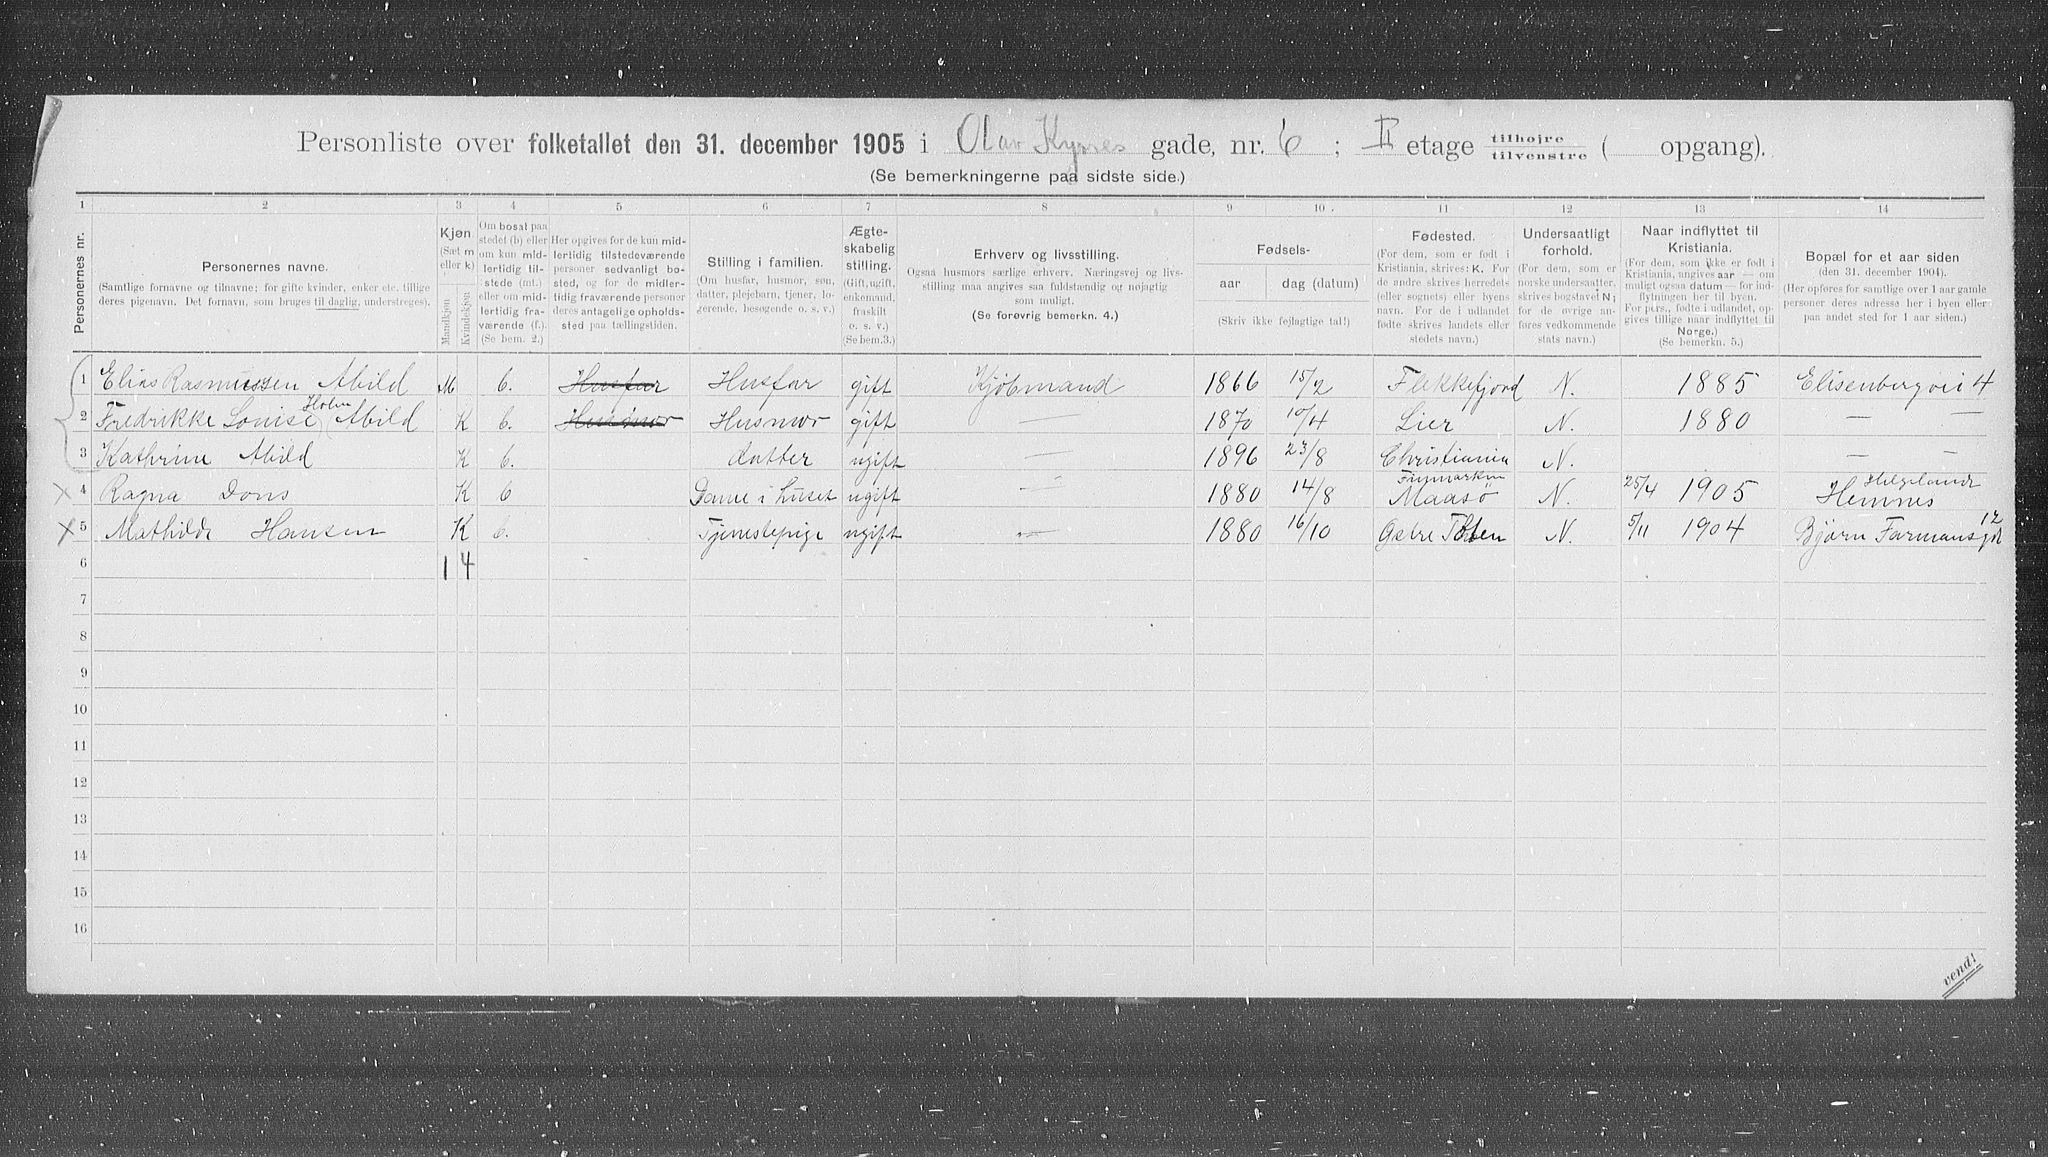 Personliste over folketallet den 31. december 1905 i Olav Kyrres gade, nr. 6 ; II etage tilhøjre tilvenstre ( opgang).
(Se bemerkningerne paa sidste side.)
1 2 3 4 5 6 7 8 9 10 11 12 13 14
Personernes nr.
Personernes navne.
(Samtlige fornavne og tilnavne; for gifte kvinder, enker etc. tillige
deres pigenavn. Det fornavn, som bruges til daglig, understreges).
Kjøn.
(Sæt m
eller k)
Mandkjøn
Kvindekjøn
Om bosat paa
stedet (b) eller
om kun mid-
lertidig til-
stede (mt.)
eller om mid-
lertidig fra-
værende (f.).
(Se bem. 2.)
Her opgives for de kun mid-
lertidig tilstedeværende
personer sedvanligt bo-
sted, og for de midler-
tidig fraværende personer
deres antagelige opholds-
sted paa tællingstiden.
Stilling i familien.
(Om husfar, husmor, søn,
datter, plejebarn, tjener, lo-
gerende, besøgende o. s. v.)
Ægte-
skabelig
stilling.
(Gift, ugift,
enkemand,
fraskilt
o. s. v.)
(Se bem.3.)
Erhverv og livsstilling.
Ogsaa husmors særlige erhverv. Næringsvej og livs-
stilling maa angives saa fuldstændig og nøjagtig
som muligt.
(Se forøvrig bemerkn. 4.)
Fødsels-
aar dag (datum)
(Skriv ikke fejlagtige tal!)
Fødested.
(For dem, som er født i
Kristiania, skrives: K. For
de andre skrives herredets
(eller sognets) eller byens
navn. For de i udlandet
fødte skrives landets eller
stedets navn.)
Undersaatligt
forhold.
(For dem, som er
norske undersaatter,
skrives bogstavet N;
for de øvrige an-
føres vedkommende
stats navn.)
Naar indflyttet til
Kristiania.
(For dem, som ikke er født i
Kristiania, angives aar — om
muligt ogsaa datum — for ind-
flytningen her til byen.
For pers., fødte i udlandet, op-
gives tillige naar indflyttet til
Norge.)
(Se bemerkn. 5.)
Bopæl for et aar siden
(den 31. december 1904).
(Her opføres for samtlige over 1 aar gamle
personer deres adresse her i byen eller
paa andet sted for 1 aar siden.)
1 Elias Rasmussen Abild M b. Husfar Husfar gift Kjöbmand 1866 15/2 Flekkefjord N. 1885 Elisenbergvei 4
2 Fredrikke Louise Holm Abild K b. Husmor Husmor gift — 1870 10/4 Lier N. 1880 — —
3 Kathrine Abild K b. datter ugift — 1896 23/8 Christiania N. — —
4 Ragna Dons K b Dame i huset ugift — 1880 14/8 Finmarken Maasö N. 25/4 1905 Helgeland Hemnes
5 Mathilde Hansen K b. Tjenestepige ugift — 1880 16/10 Østre Toten N. 5/11 1904 Bjørn Farmansgd 12
6 1 4
7
8
9
10
11
12
13
14
15
16
vend!